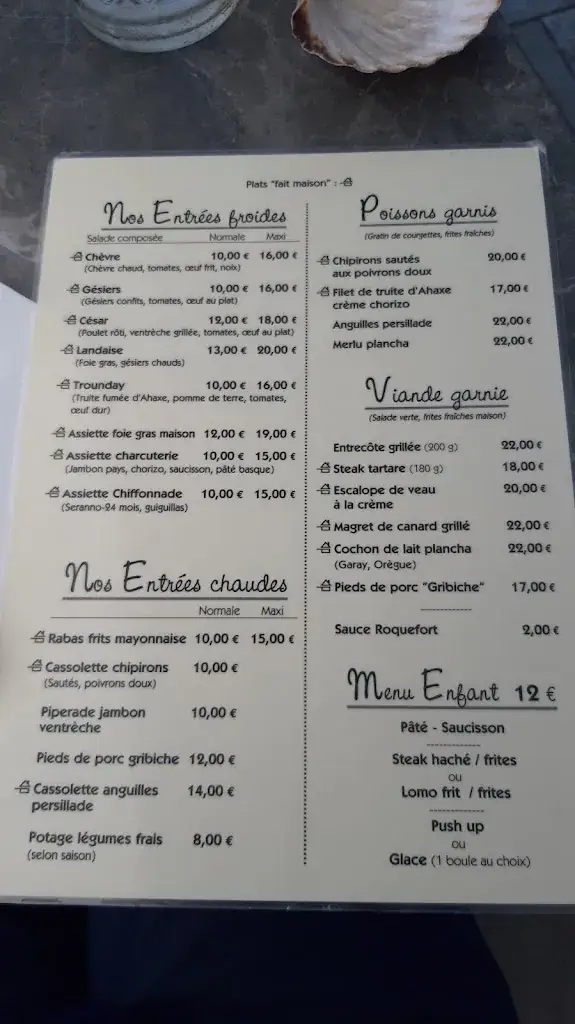 Plats "fait maison" :
Nos Entrées froides
Salade composée Normale Maxi
Chèvre 10,00 € 16,00 €
(Chèvre chaud, tomates, œuf frit, noix)
Gésiers 10,00 € 16,00 €
(Gésiers confits, tomates, œuf au plat)
César 12,00 € 18,00 €
(Poulet rôti, ventrèche grillée, tomates, œuf au plat)
Landaise 13,00 € 20,00 €
(Foie gras, gésiers chauds)
Trounday 10,00 € 16,00 €
(Truite fumée d'Ahaxe, pomme de terre, tomates,
œuf dur)
Assiette foie gras maison 12,00 € 19,00 €
Assiette charcuterie 10,00 € 15,00 €
(Jambon pays, chorizo, saucisson, pâté basque)
Assiette Chiffonnade 10,00 € 15,00 €
(Seranno-24 mois, guiguillas)
Nos Entrées chaudes
Normale Maxi
Rabas frits mayonnaise 10,00 € 15,00 €
Cassolette chipirons 10,00 €
(Sautés, poivrons doux)
Piperade jambon 10,00 €
ventrèche
Pieds de porc gribiche 12,00 €
Cassolette anguilles 14,00 €
persillade
Potage légumes frais 8,00 €
(selon saison)
Poissons garnis
(Gratin de courgettes, frites fraîches)
Chipirons sautés 20,00 €
aux poivrons doux
Filet de truite d'Ahaxe 17,00 €
crème chorizo
Anguilles persillade 22,00 €
Merlu plancha 22,00 €
Viande garnie
(Salade verte, frites fraîches maison)
Entrecôte grillée (200 g) 22,00 €
Steak tartare (180 g) 18,00 €
Escalope de veau 20,00 €
à la crème
Magret de canard grillé 22,00 €
Cochon de lait plancha 22,00 €
(Garay, Orègue)
Pieds de porc "Gribiche" 17,00 €
Sauce Roquefort 2,00 €
Menu Enfant 12 €
Pâté - Saucisson
Steak haché / frites
ou
Lomo frit / frites
Push up
ou
Glace (1 boule au choix)